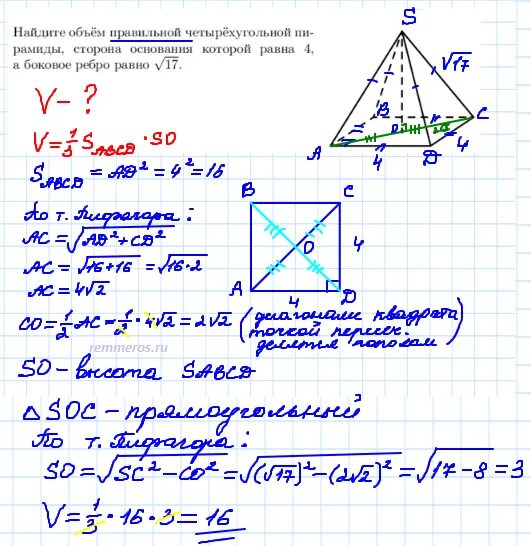 Найдите объём правильной четырёхугольной пи-
рамиды, сторона основания которой равна 4,
а боковое ребро равно √17.
S
√17
B
C
O
2√2
A
4
D
4
V - ?
V = 1/3 S_ABCD · SO
S_ABCD = AD² = 4² = 16
По т. Пифагора:
AC = √(AD² + CD²)
AC = √(16+16) = √(16·2)
AC = 4√2
B
C
O
4
A
4
D
CO = 1/2 AC = 1/2 · 4√2 = 2√2 (диагонали квадрата
точкой перес.
делятся пополам)
remmeros.ru
SO - высота SABCD
△SOC - прямоугольный
По т. Пифагора:
SO = √(SC² - CO²) = √((√17)² - (2√2)²) = √(17-8) = 3
V = 1/3 · 16 · 3 = 16